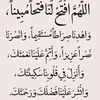 اللَّهُمَّ افْتَحْ لَنَا فَتْحًا مُبِينًا،
وَاهْدِنَا صِرَاطًا مُسْتَقِيمًا، وَانْصُرْنَا
نَصْرًا عَزِيزًا، وَأَتِمَّ عَلَيْنَا نِعْمَتَكَ،
وَأَنْزِلْ فِي قُلُوبِنَا سَكِينَتَكَ،
وَانْشُرْ عَلَيْنَا فَضْلَكَ وَرَحْمَتَكَ.